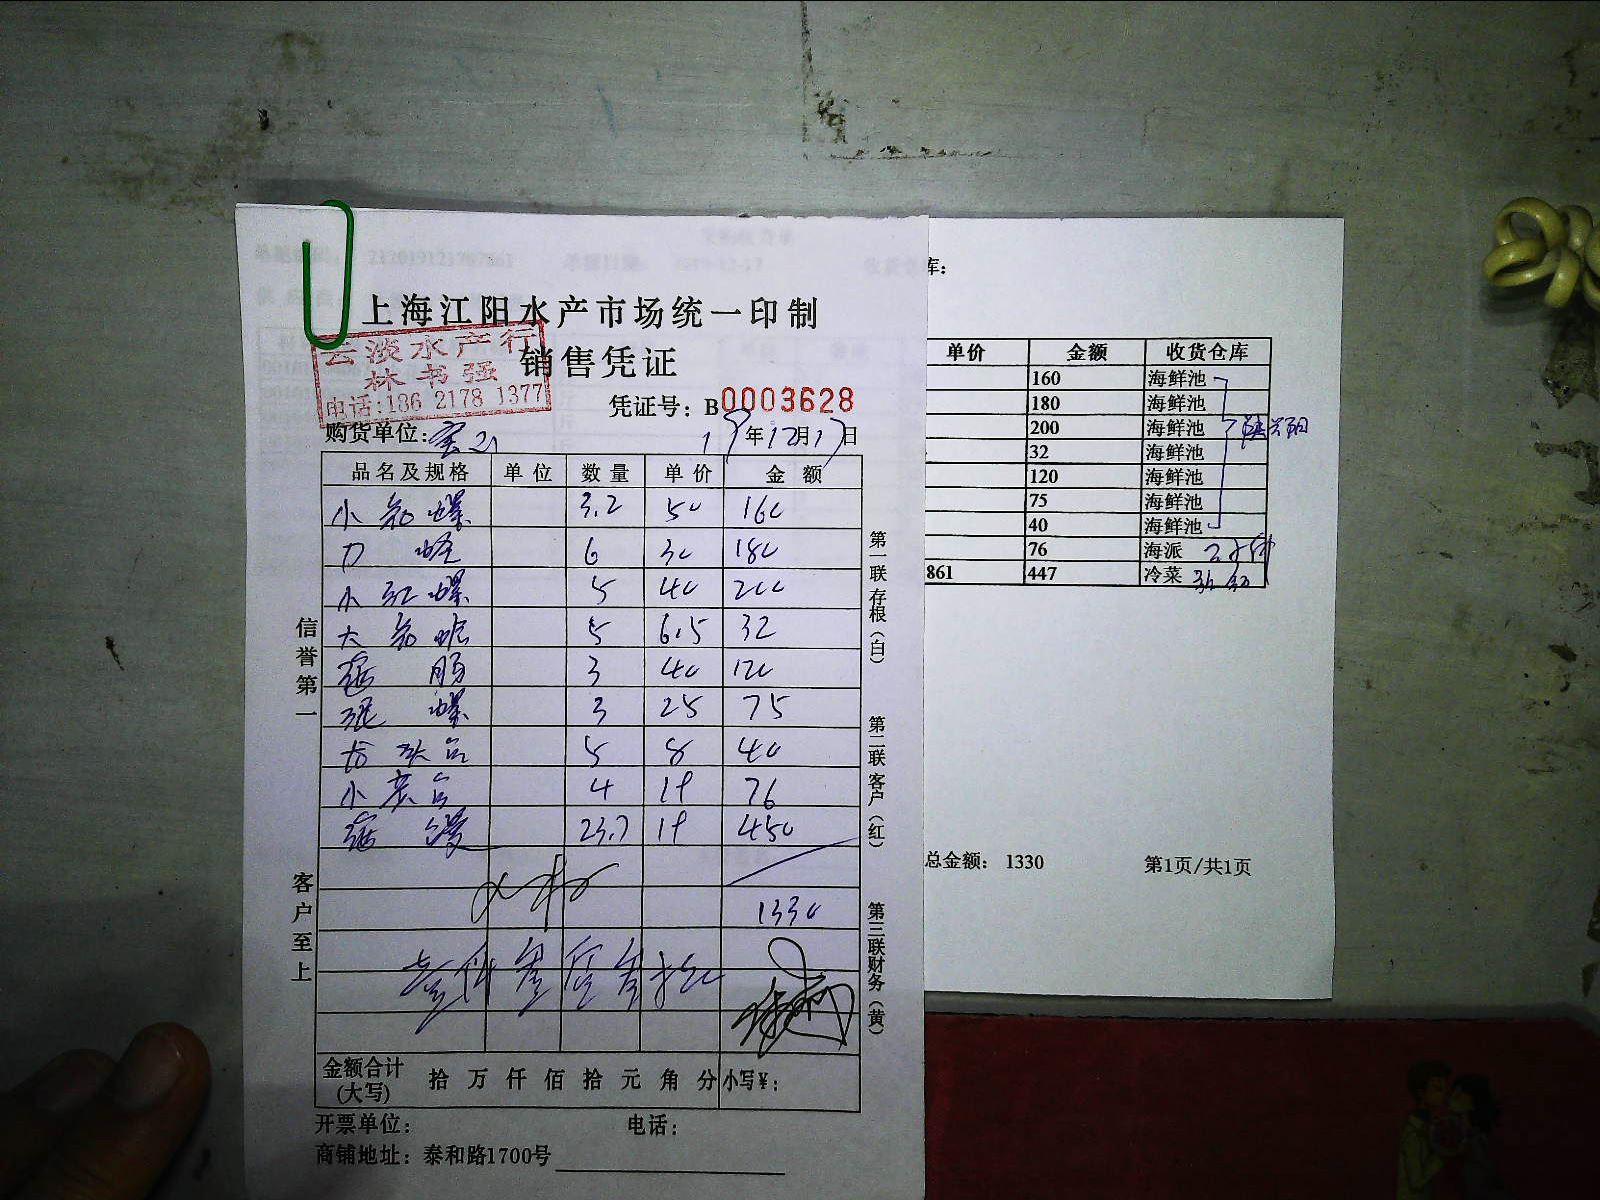 上海江阳水产市场统一印制
销售凭证
云淡水产行
林书强
电话:186 2178 1377
凭证号：B0003628
购货单位：宝山
19年12月17日
品名及规格 单位 数量 单价 金额
小 螺 3.2 50 160
6 30 180
小红螺 5 40 200
大 5 6.5 32
3 40 120
螺 3 25 75
5 8 40
小 4 19 76
23.7 19 450
1330
金额合计(大写) 拾 万 仟 佰 拾 元 角 分 小写¥：
开票单位： 电话：
商铺地址：泰和路1700号
信誉第一
客户至上
第一联存根（白）
第二联客户（红）
第三联财务（黄）
库：
单价 金额 收货仓库
160 海鲜池
180 海鲜池
200 海鲜池
32 海鲜池
120 海鲜池
75 海鲜池
40 海鲜池
76 海派
861 447 冷菜
总金额： 1330 第1页/共1页